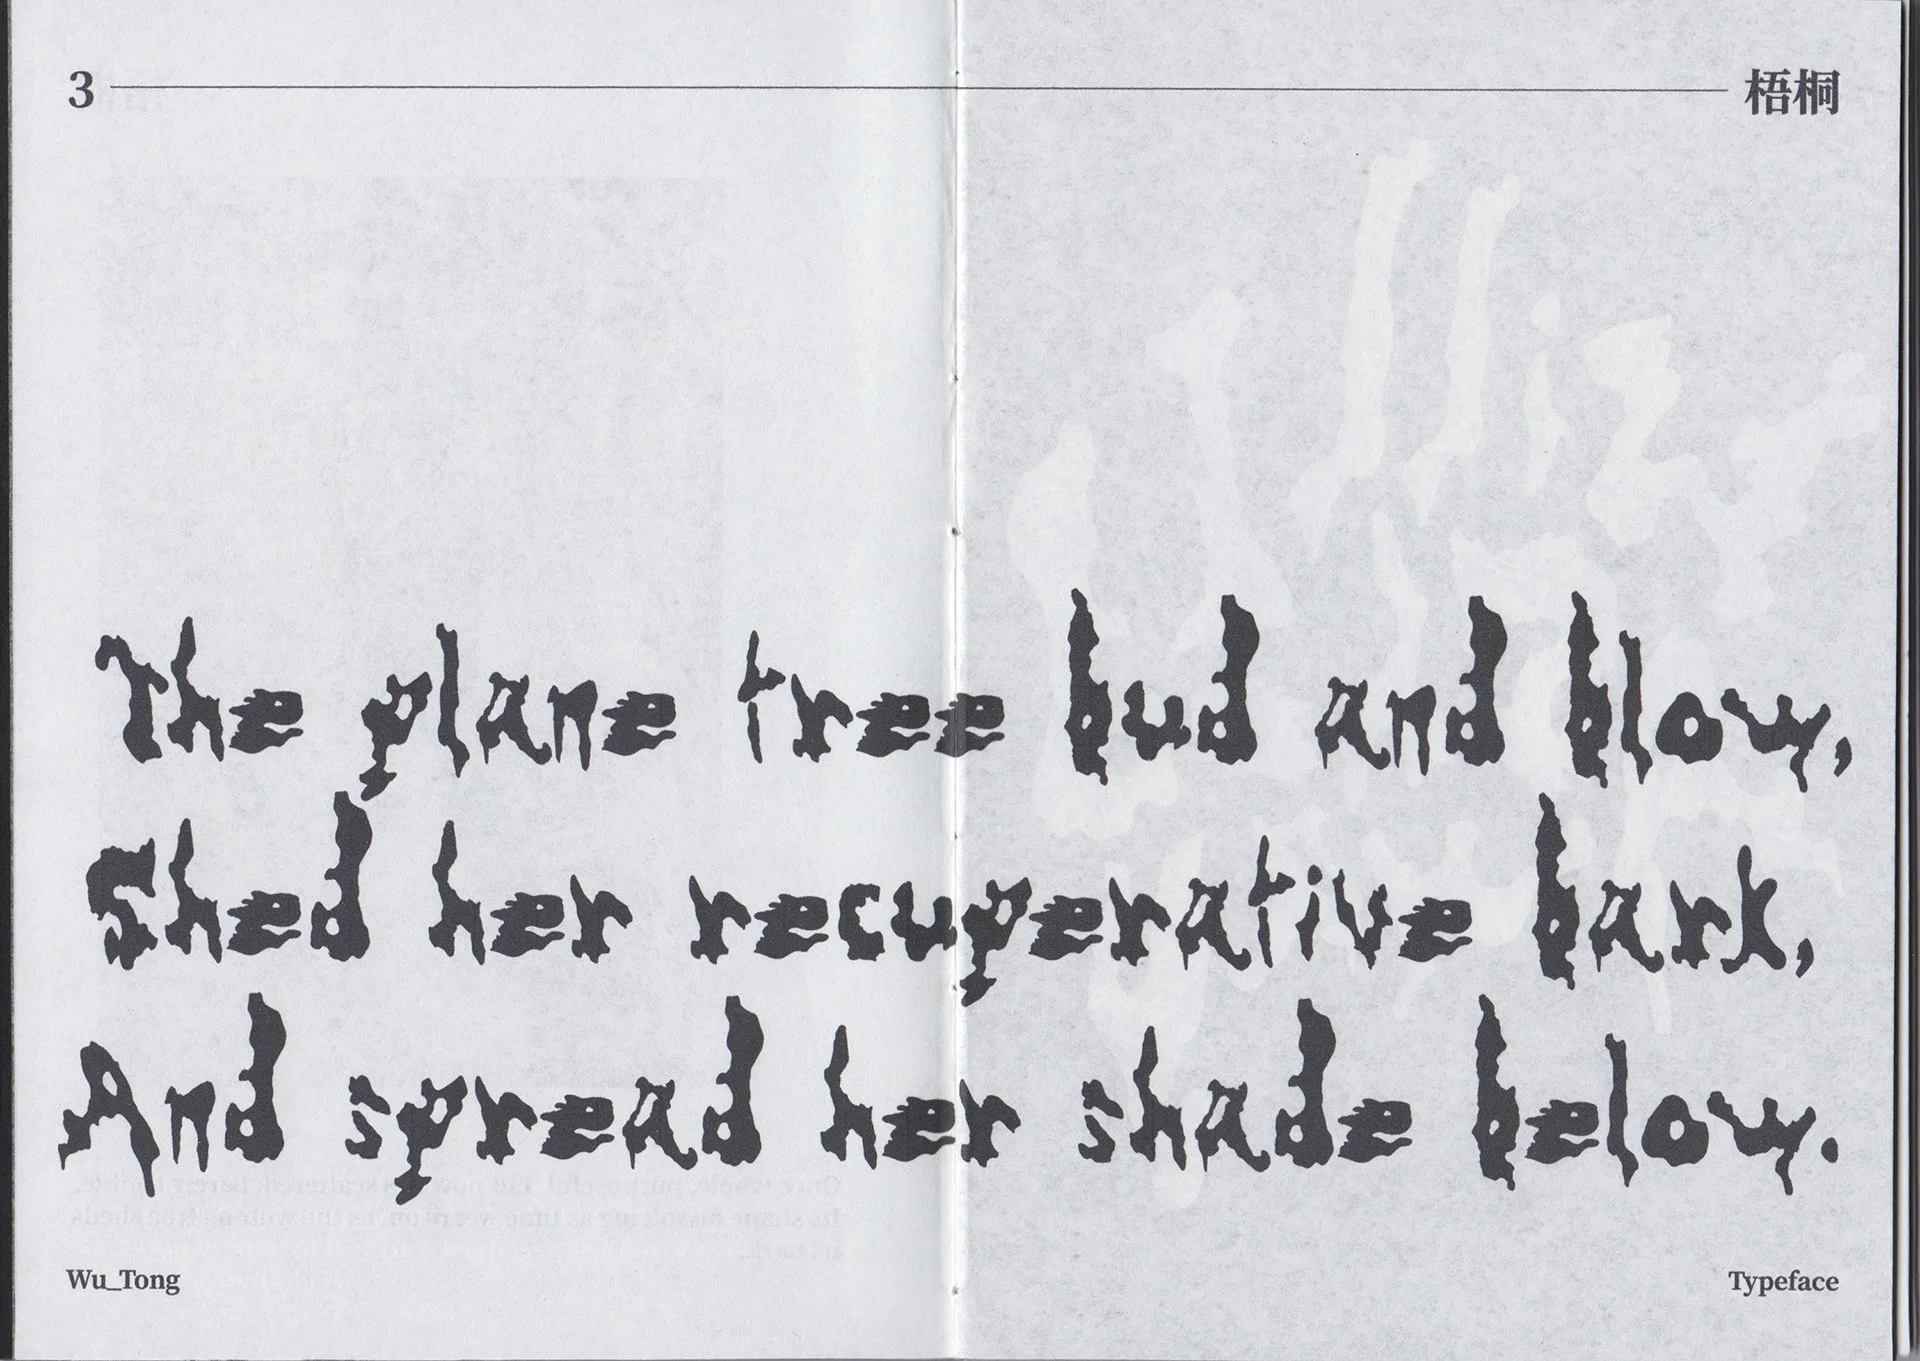 3
梧桐
The plane tree bud and blow,
Shed her recuperative bark,
And spread her shade below.
Wu_Tong
Typeface